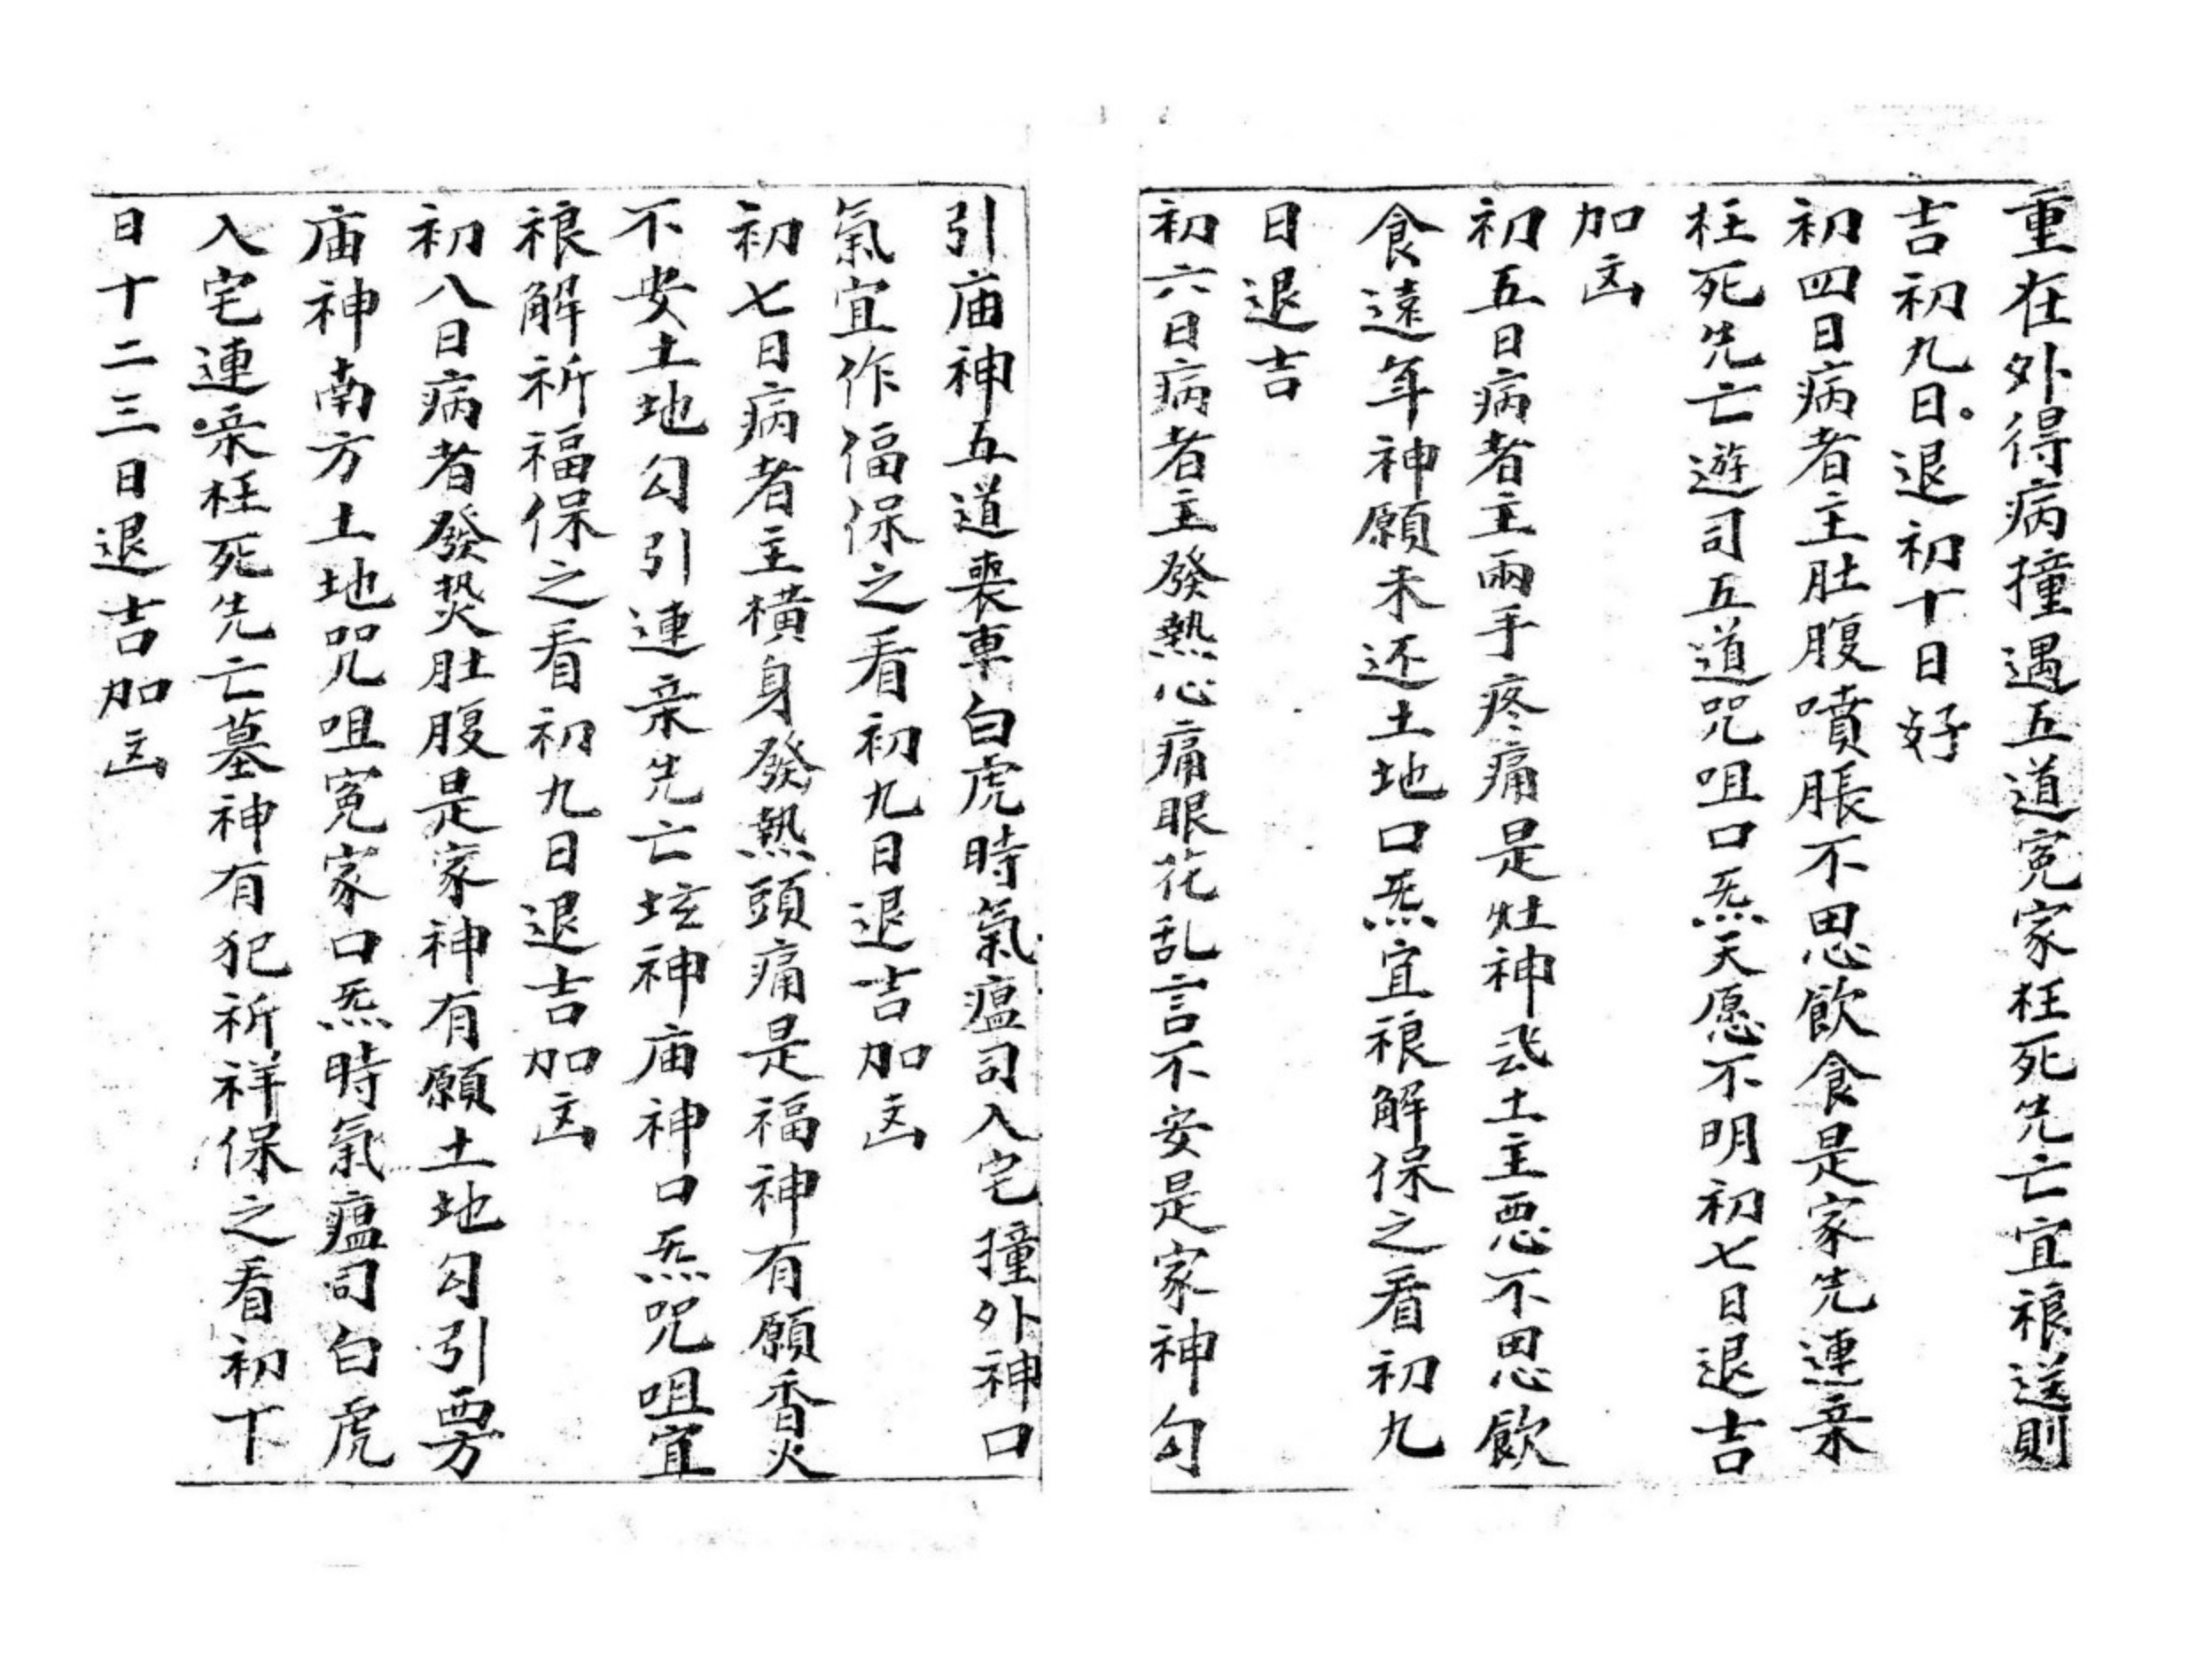 重在外得病撞遇五道冤家枉死先亡宜禳送則
吉初九日退初十日好
初四日病者主肚腹噴脹不思飲食是家先連亲
枉死先亡遊司五道咒咀口炁天愿不明初七日退吉
加凶
初五日病者主兩手疼痛是灶神土主恶不思飲
食遠年神願未还土地口炁宜禳解保之看初九
日退吉
初六日病者主發熱心痛眼花乱言不安是家神勾
引庙神五道喪車白虎時氣瘟司入宅撞外神口
氣宜作福保之看初九日退吉加凶
初七日病者主橫身發熱頭痛是福神有願香火
不安土地勾引連亲先亡坟神庙神口炁咒咀宜
禳解祈福保之看初九日退吉加凶
初八日病者發热肚腹是家神有願土地勾引
庙神南方土地咒咀冤家口炁時氣瘟司白虎
入宅連亲枉死先亡墓神有犯祈祥保之看初下
日十二三日退吉加凶